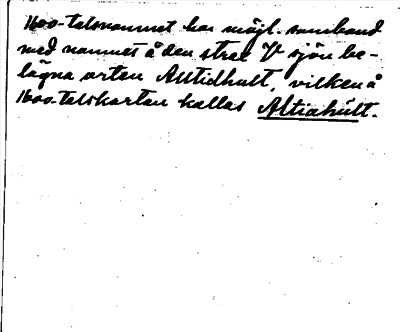 1600-talsnamnet har möjl. samband
med namnet å den strax V sjön be-
lägna orten Alltidhult, vilken å
1600-talskartan kallas Altiahult.